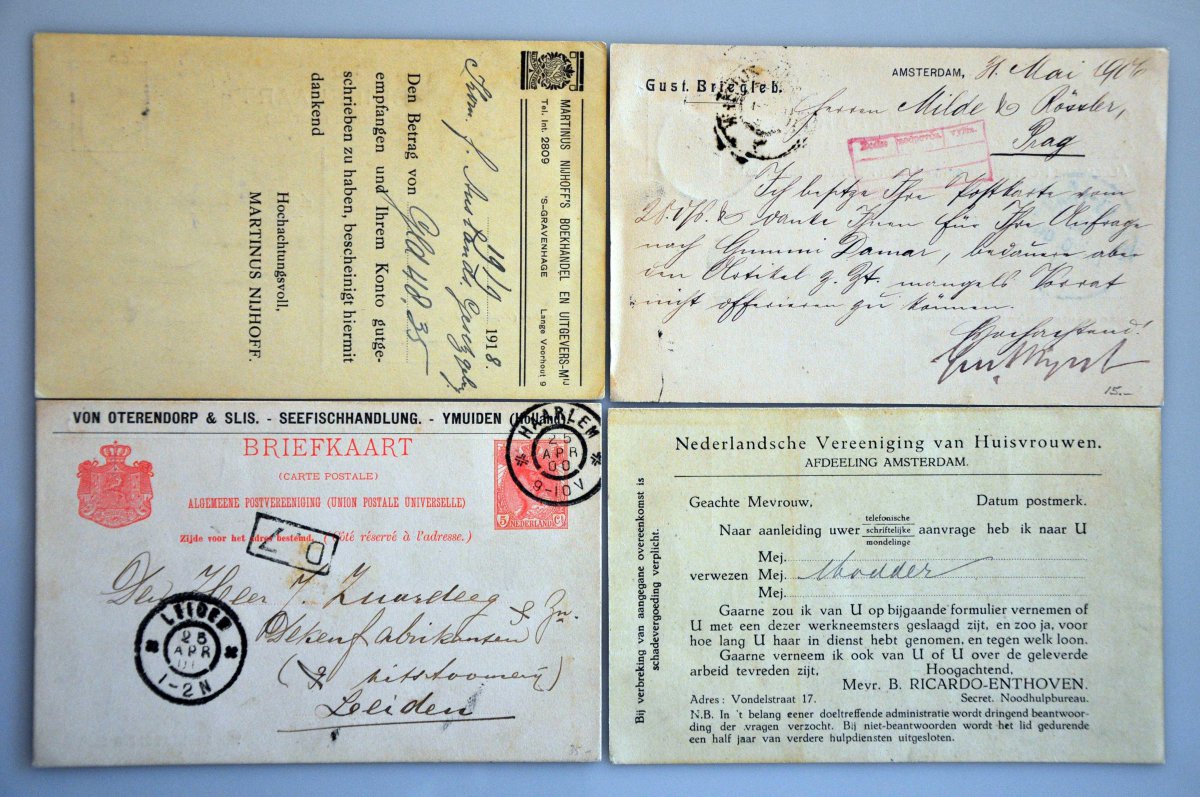 MARTINUS NIJHOFF'S BOEKHANDEL EN UITGEVERS-MIJ
Tel. Int. 2809 'S-GRAVENHAGE Lange Voorhout 9
19/9 1918.
Den Betrag von Gld 48.35
empfangen und Ihrem Konto gutge-
schrieben zu haben, bescheinigt hiermit
dankend
Hochachtungsvoll,
MARTINUS NIJHOFF.
Gust. Briegleb.
AMSTERDAM, 31. Mai
Herren Milde & Rössler,
Prag
Ich besitze Ihre Postkarte vom
danke Ihnen für Ihre Anfrage
nach Gummi Damar, bedaure aber
den Artikel z. Zt. mangels Vorrat
nicht offerieren zu können.
Hochachtend!
15.-
VON OTERENDORP & SLIS. - SEEFISCHHANDLUNG. - YMUIDEN (Holland)
BRIEFKAART
(CARTE POSTALE)
ALGEMEENE POSTVEREENIGING (UNION POSTALE UNIVERSELLE)
Zijde voor het adres bestemd. (Côté réservé à l'adresse.)
5 NEDERLAND Ct
HAARLEM
25
APR
00
9-10V
Den Heer
Dekenfabrikanten & Zn.
Leiden
LEIDEN
25
APR
1-2N
Nederlandsche Vereeniging van Huisvrouwen.
AFDEELING AMSTERDAM.
Geachte Mevrouw, Datum postmerk.
Naar aanleiding uwer telefonische schriftelijke mondelinge aanvrage heb ik naar U
Mej.
verwezen Mej. Modder
Mej.
Gaarne zou ik van U op bijgaande formulier vernemen of
U met een dezer werkneemsters geslaagd zijt, en zoo ja, voor
hoe lang U haar in dienst hebt genomen, en tegen welk loon.
Gaarne verneem ik ook van U of U over de geleverde
arbeid tevreden zijt. Hoogachtend,
Mevr. B. RICARDO-ENTHOVEN.
Adres: Vondelstraat 17. Secret. Noodhulpbureau.
N.B. In 't belang eener doeltreffende administratie wordt dringend beantwoor-
ding der vragen verzocht. Bij niet-beantwoorden wordt het lid gedurende
een half jaar van verdere hulpdiensten uitgesloten.
Bij verbreking van aangegane overeenkomst is
schadevergoeding verplicht.